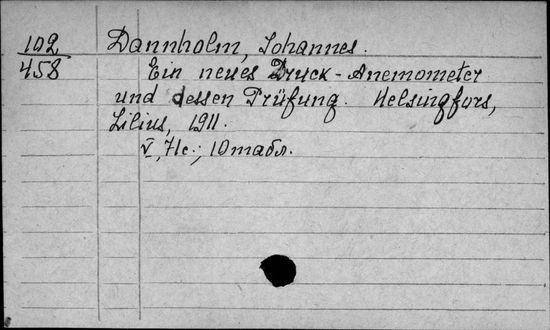 102
458
Dannholm, Johannes.
Ein neues Druck-Anemometer
und dessen Prüfung. Helsingfors,
Lilius, 1911.
V, 71 с.; 10 табл.